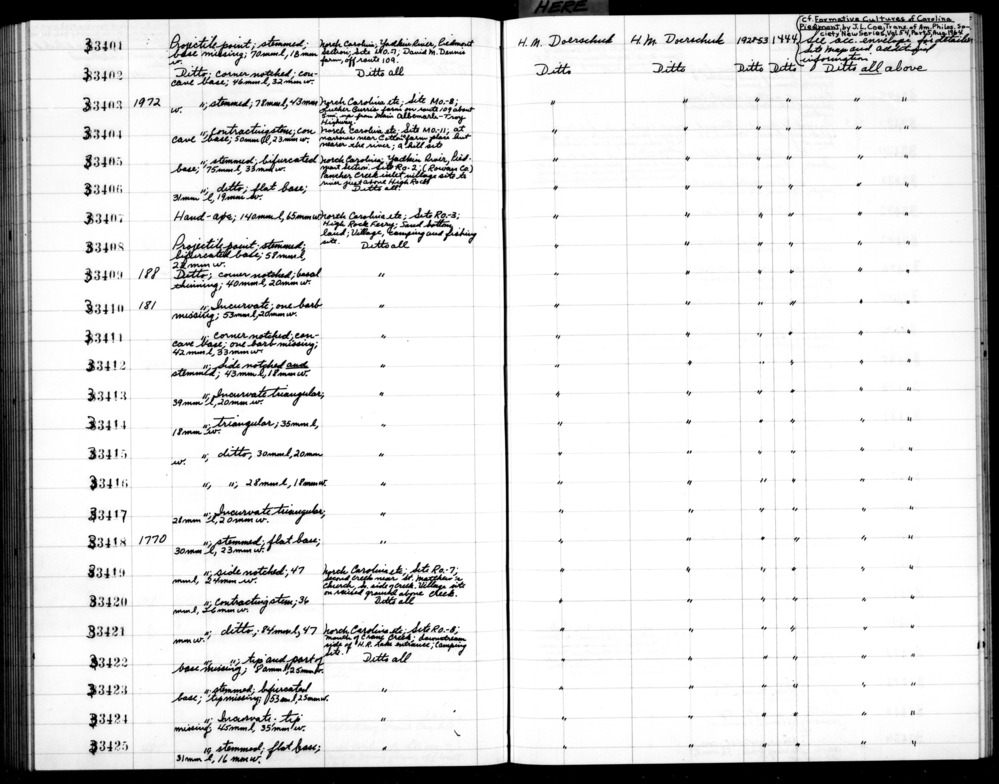 HERE
cf. Formative Cultures of Carolina
Piedmont, by J.L. Coe, Trans. of Am. Philos. So-
ciety New Series, Vol. 54, Part 5, Aug. 1964
33401 Projectile point; stemmed; North Carolina; Yadkin River, Piedmont H.M. Doerschuk H.M. Doerschuk 1925-53 1444 See acc. envelope for detailed
base missing; 70mm l, 18mm section; Site Mo.-7; David M. Dennis site map and additional
w. farm, off route 109. information
33402 Ditto; corner notched; con- Ditto all Ditto Ditto Ditto Ditto Ditto all above
cave base; 46mm l, 32mm w.
33403 1972 "; stemmed; 78mm l, 43mm North Carolina etc; Site Mo.-8; " " " " " "
w. Luther Burris farm on route 109 about
from main Albemarle-Troy
Highway.
33404 "; contracting stem; con North Carolina etc; Site Mo-11; at " " " " " "
cave base; 50mm l, 23mm w. narrows near Cotton farm place but
nearer the river; a hill site
33405 "; stemmed; bifurcated North Carolina; Yadkin River, Pied- " " " " " "
base; 75mm l, 33mm w. mont section. Site Ro-2; (Rowan Co)
Panther Creek inlet village site to
river just above High Rock
33406 "; ditto; flat base; Ditto all. " " " " " "
31mm l, 19mm w.
33407 Hand-axe; 140mm l, 65mm w North Carolina etc; Site Ro.-3; " " " " " "
High Rock Ferry; Sand bottom
land; Village, camping and fishing
site.
33408 Projectile point; stemmed; Ditto all " " " " " "
bifurcated base; 58mm l,
28mm w.
33409 188 Ditto; corner notched; basal " " " " " " "
thinning; 40mm l, 20mm w.
33410 181 "; Incurvate; one barb " " " " " " "
missing; 53mm l, 20mm w.
33411 "; corner notched; con- " " " " " " "
cave base; one barb missing;
42mm l, 33mm w.
33412 "; Side notched and " " " " " " "
stemmed; 43mm l, 18mm w.
33413 "; Incurvate triangular; " " " " " " "
39mm l, 20mm w.
33414 "; triangular; 35mm l, " " " " " " "
18mm w.
33415 "; ditto; 30mm l, 20mm " " " " " " "
w.
33416 "; "; 28mm l, 18mm w. " " " " " " "
33417 "; Incurvate triangular; " " " " " " "
28mm l, 20mm w.
33418 1770 "; stemmed; flat base; " " " " " " "
30mm l, 23mm w.
33419 "; side notched; 47 North Carolina etc; Site Ro.-7; " " " " " "
mm l, 24mm w. Second Creek near St. Matthew's
Church, S. side of creek. Village site
on raised ground above creek.
33420 "; contracting stem; 36 Ditto all " " " " " "
mm l, 26mm w.
33421 "; ditto; 84mm l, 47 North Carolina etc; Site Ro.-8; " " " " " "
mm w. mouth of Crane Creek; downstream
side of H.R. Lake entrance; Camping
site.
33422 "; "; tip and part of Ditto all " " " " " "
base missing; mm l, 25mm w.
33423 "; stemmed; bifurcated " " " " " " "
base; tip missing; 53mm l, 25mm w.
33424 "; Incurvate; tip " " " " " " "
missing; 45mm l, 35mm w.
33425 "; stemmed; flat base; " " " " " " "
31mm l, 16mm w.